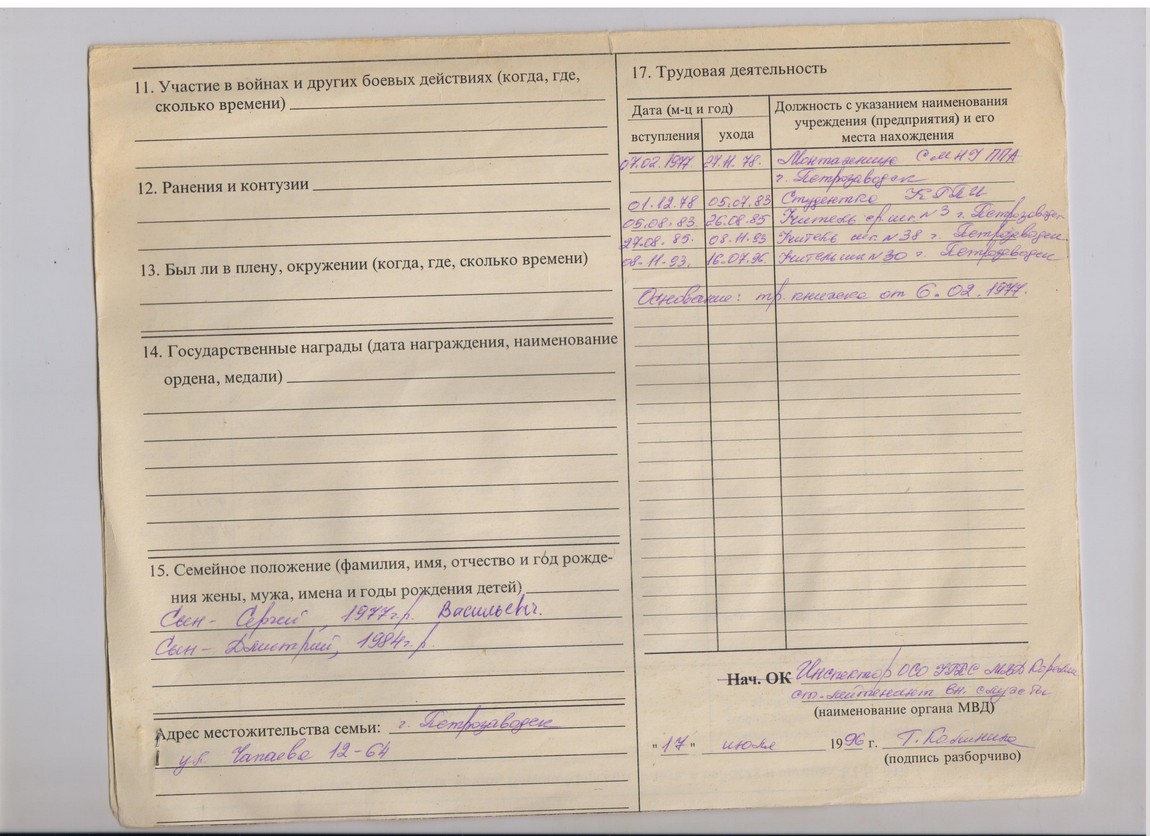 11. Участие в войнах и других боевых действиях (когда, где,
сколько времени)
12. Ранения и контузии
13. Был ли в плену, окружении (когда, где, сколько времени)
14. Государственные награды (дата награждения, наименование
ордена, медали)
15. Семейное положение (фамилия, имя, отчество и год рожде-
ния жены, мужа, имена и годы рождения детей)
Сын- Сергей 1977г.р. Васильевич.
Сын- Дмитрий, 1984г.р.
Адрес местожительства семьи: г. Петрозаводск
ул. Чапаева 12-64
17. Трудовая деятельность
Дата (м-ц и год)
вступления ухода
Должность с указанием наименования
учреждения (предприятия) и его
места нахождения
07.02.1977 27.11.78. Монтажница СМНУ ППА
г. Петрозаводск
01.12.78 05.07.83 Студентка КГПИ
05.08.83. 26.08.85 Учитель ср.шк. №3 г. Петрозаводск
27.08.85. 08.11.93 Учитель шк. №38 г. Петрозаводск
08.11.93. 16.07.96 Учитель шк №30 г. Петрозаводск
Основание: тр. книжка от 6.02.1977.
Нач. ОК Инспектор ОСО МВД Карелии
ст. лейтенант вн. службы
(наименование органа МВД)
"17" июля 1996 г. Т. Калинина
(подпись разборчиво)